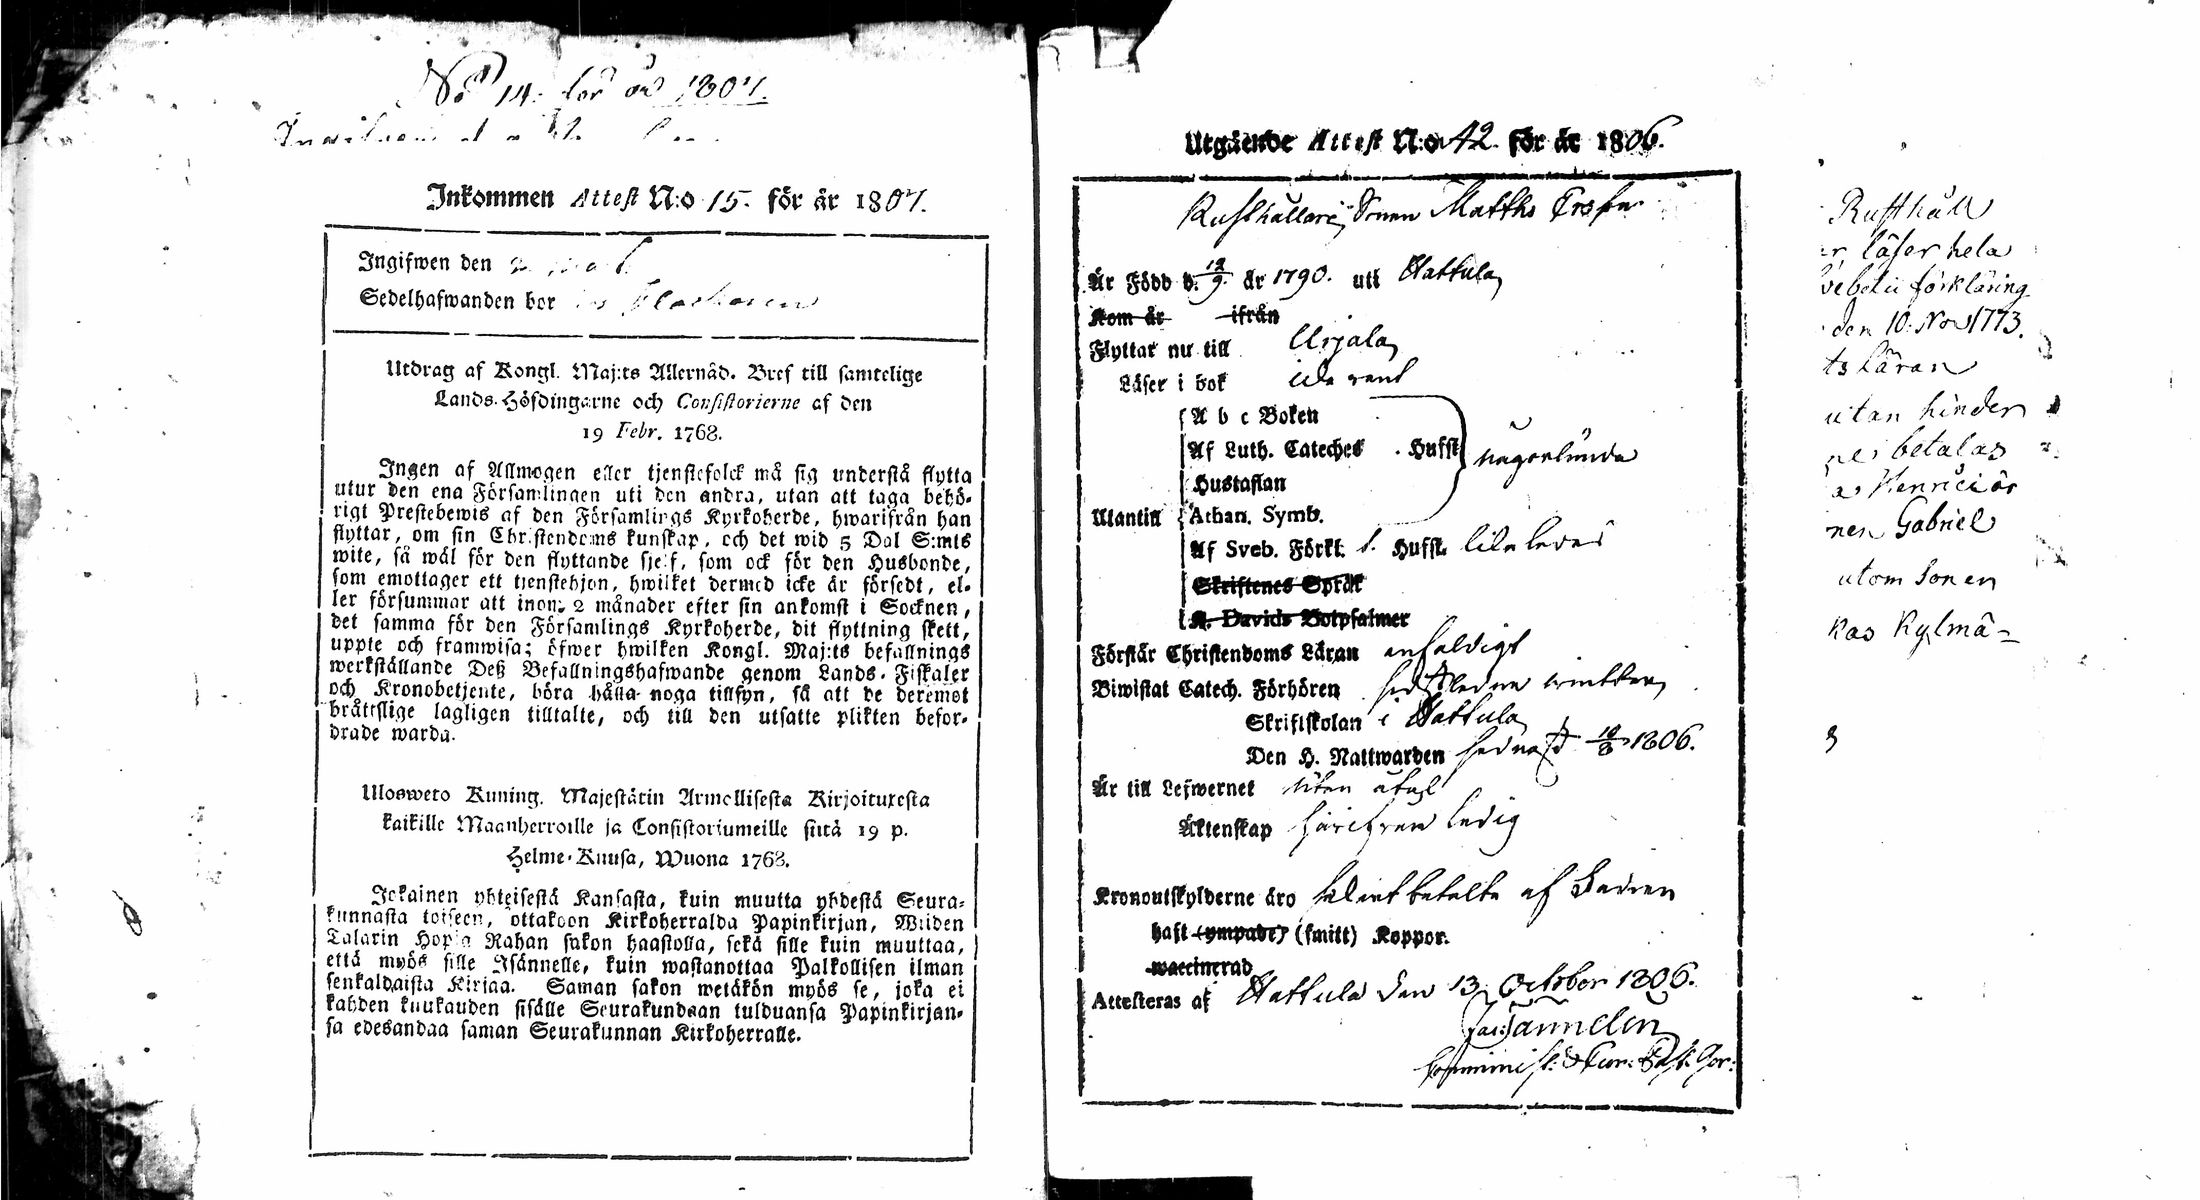 No 14. för år 1807.
Inkommen Attest N:o 15. för år 1807.
Ingifwen den
Sedelhafwanden bor
Utdrag af Kongl. Maj:ts Allernåd. Bref till samtelige
Lands-Höfdingarne och Consistorierne af den
19 Febr. 1768.
Ingen af Allmogen eller tjenstefolck må sig understå flytta
utur den ena Församlingen uti den andra, utan att taga behö-
rigt Prestebewis af den Församlings Kyrkoherde, hwarifrån han
flyttar, om sin Christendoms kunskap, och det wid 5 Dal S:mts
wite, så wäl för den flyttande sjelf, som ock för den Husbonde,
som emottager ett tjenstehjon, hwilket dermed icke är försedt, el-
ler försummar att inom 2 månader efter sin ankomst i Socknen,
det samma för den Församlings Kyrkoherde, dit flyttning skett,
uppte och framwisa; öfwer hwilken Kongl. Maj:ts befallnings
werkställande Deß Befallningshafwande genom Lands-Fiskaler
och Kronobetjente, böra hålla noga tillsyn, så att de deremot
bråtslige lagligen tilltalte, och till den utsatte plikten befor-
drade warda.
Ulosweto Kuning. Majestätin Armollisesta Kirjoituxesta
kaikille Maanherroille ja Consistoriumeille siitä 19 p.
Helme-Kuusa, Wuona 1768.
Jokainen yhteisestä Kansasta, kuin muutta yhdestä Seura-
kunnasta toiseen, ottakoon Kirkoherralda Papinkirjan, Wiiden
Talarin Hopia Rahan sakon haastolla, sekä sille kuin muuttaa,
että myös sille Isännelle, kuin wastanottaa Palkollisen ilman
senkaldaista Kirjaa. Saman sakon wetäkön myös se, joka ei
kahden kuukauden sisälle Seurakundaan tulduansa Papinkirjan-
sa edesandaa saman Seurakunnan Kirkoherralle.
Utgående Attest N:o 42. för år 1806.
Rusthållare Sonen Matths
Är Född d. 12/9. år 1790. uti Hattula
Kom år ifrån
Flyttar nu till Urjala
Läser i bok
A b c Boken
Af Luth. Cateches . Hufst någorlunda
Hustaflan
Utantill Athan. Symb.
Af Sveb. Förkl. Hufst.
Skriftenes Språk
K. Davids Botpsalmer
Förstår Christendoms Läran enfaldigt
Biwistat Catech. Förhören sistledne wintter
Skriftskolan i Hattula
Den H. Nattwarden sednast 1806.
Är till Lefwernet utan
Äktenskap härifrån ledig
Kronoutskylderne äro betalte af Fadren
haft (ympade) (smitt) Koppor.
waccinerad
Attesteras af Hattula den 13 October 1806.
Rusthåll
läser hela
förklaring
den 10. Nov 1773.
läran
utan hinder
betalas
Henrici
Gabriel
utom sonen
Kylmä-